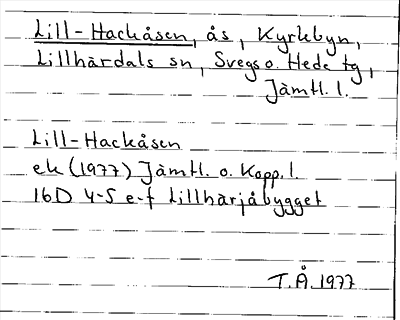 Lill-Hackåsen, ås, Kyrkbyn,
Lillhärdals sn, Svegs o. Hede tg,
Jämtl. l.
Lill-Hackåsen
ek (1977) Jämtl. o. Kopp. l.
16D 4-5 e-f Lillhärjåbygget
T.Å. 1977